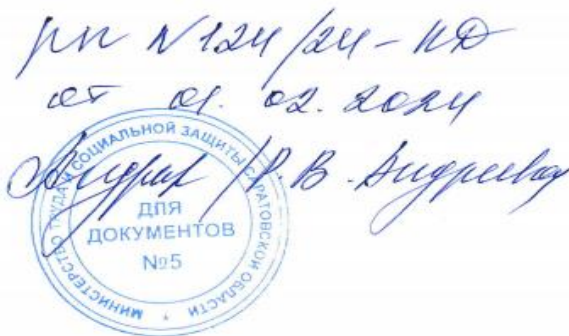 рп N 124/24-КД
от 01.02.2024
Р.В. Андреева
МИНИСТЕРСТВО ТРУДА И СОЦИАЛЬНОЙ ЗАЩИТЫ САРАТОВСКОЙ ОБЛАСТИ
ДЛЯ
ДОКУМЕНТОВ
№5